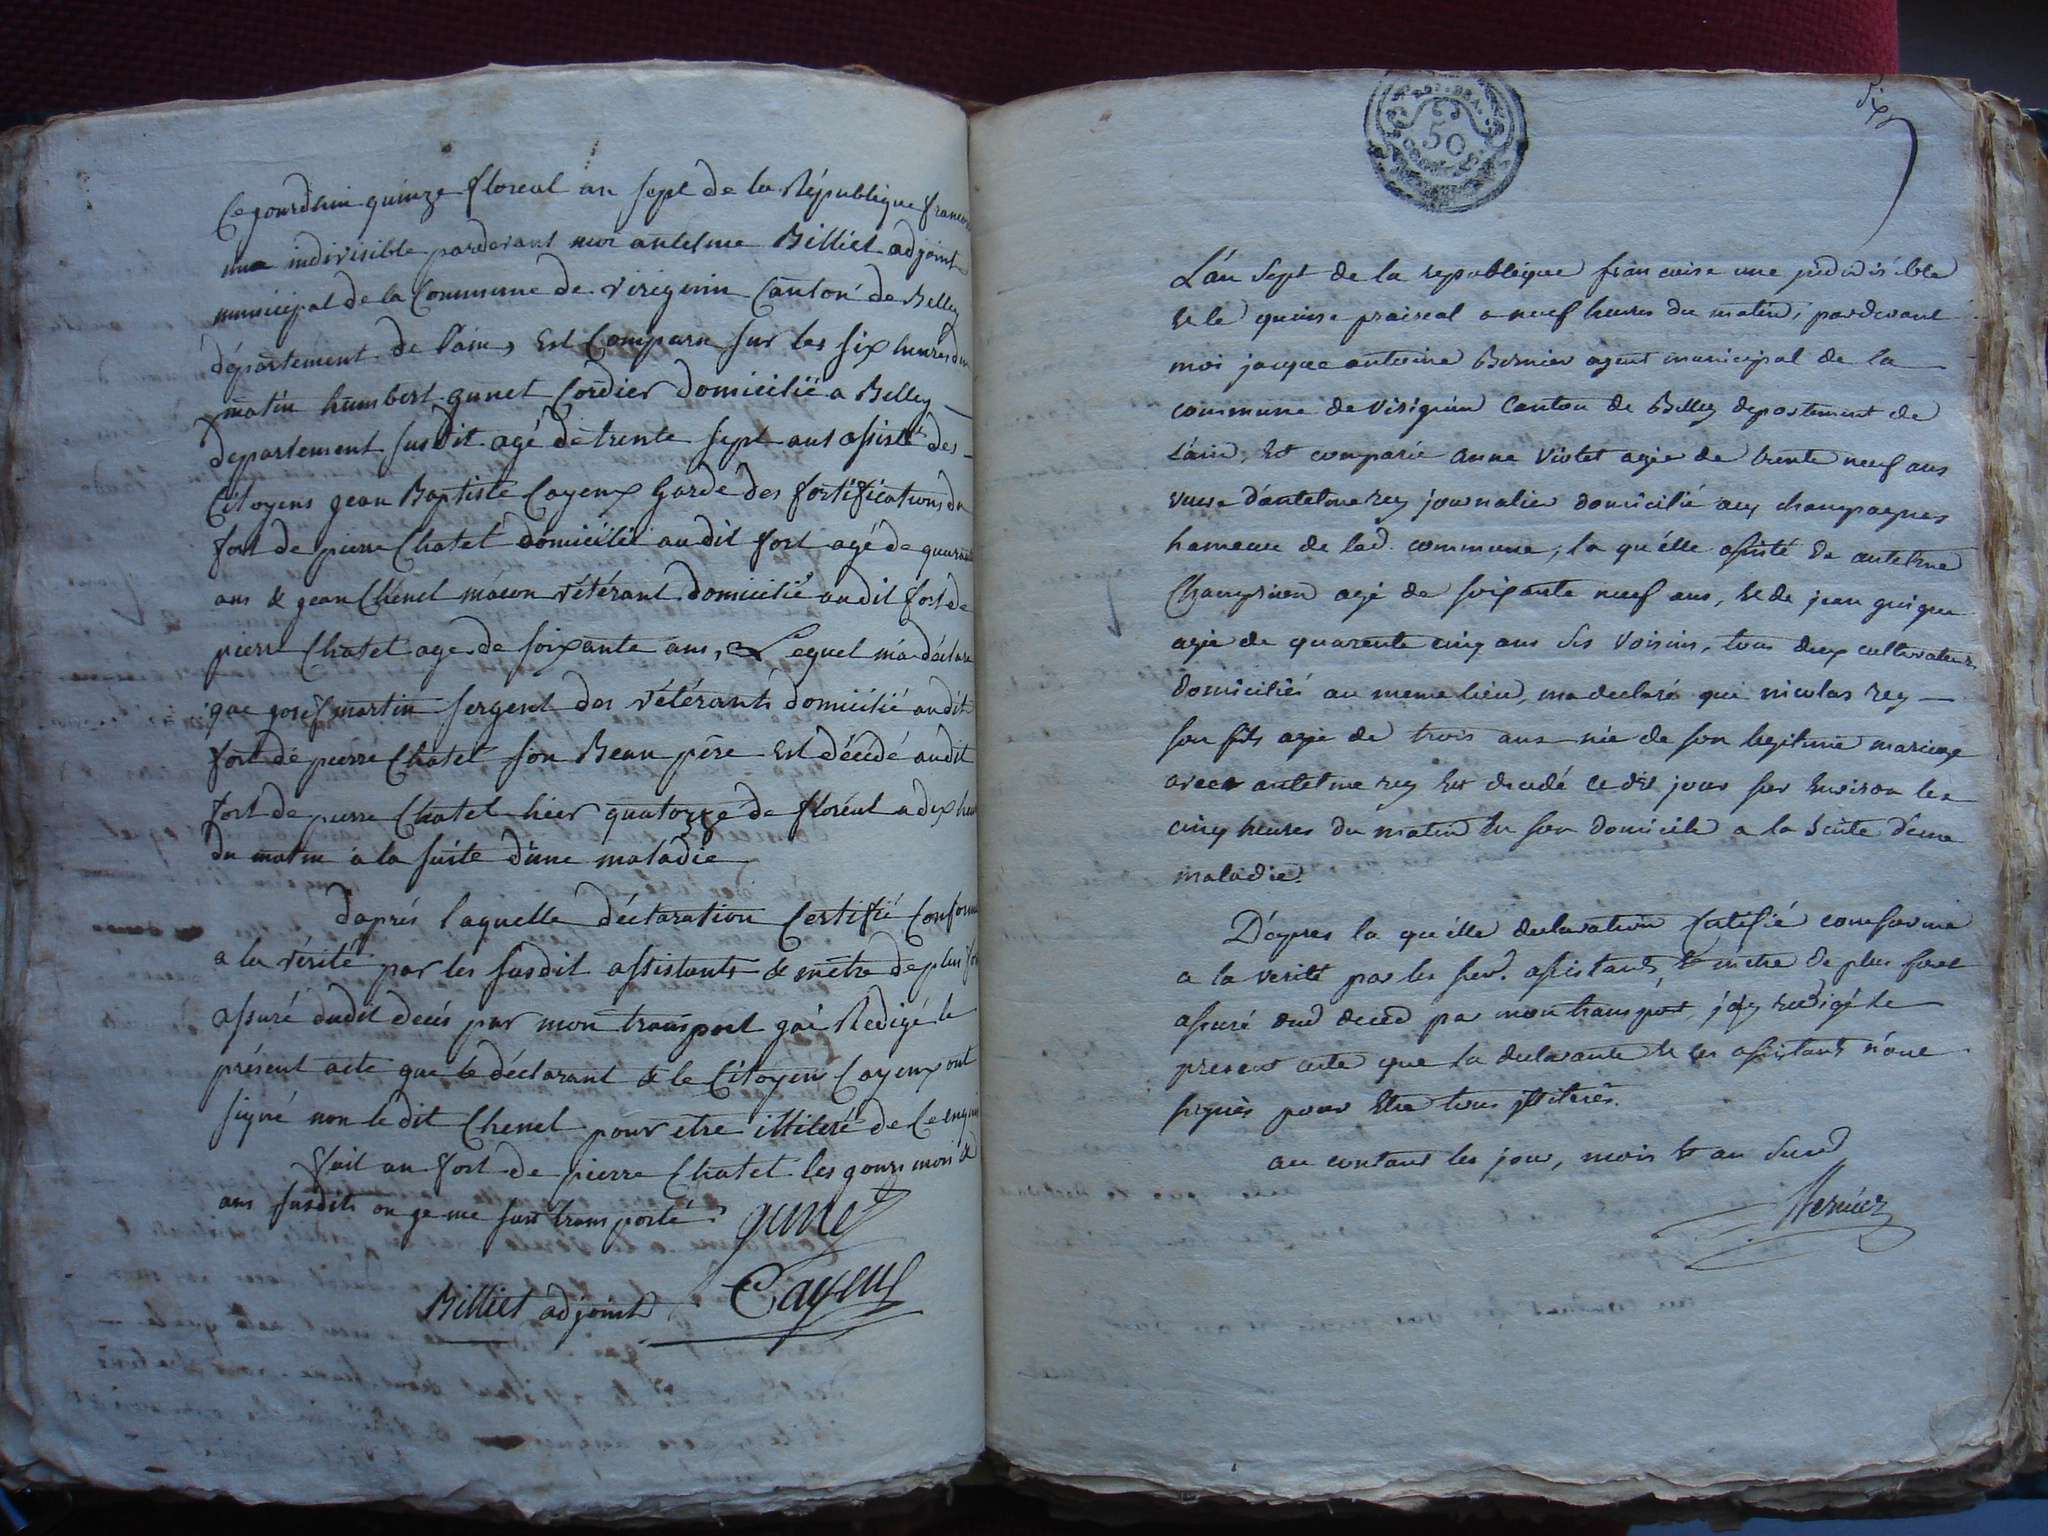 Cejourdhui quinze floreal an sept de la République francois
une indivisible pardevant moi antelme Billiet adjoint
municipal de la Commune de virignin Canton de Belley
département de l'ain, Est Comparu sur les six heures du
matin humbert gunet Cordier domicilié a Belley
departement susdit agé de trente sept ans assisté des
Citoyens jean Baptiste Cayeux Garde des fortifications du
fort de pierre Chatel domicilié audit fort agé de quarante
ans & jean Chenel macon vétérant domicilié audit fort de
pierre Chatel age de soixante ans, Lequel m'a déclaré
que josef martin sergent des vétérants domicilié audit
fort de pierre Chatel son Beau père Est décédé audit
fort de pierre Chatel hier quatorze de floréal a dix heu
du matin a la suite d'une maladie
d'aprés laquelle déclaration Certifié Conforme
a la vérité par les susdit assistants & m'etre de plus
assuré dudit decés par mon transport j'ai Redigé le
présent acte que le déclarant & le Citoyen Cayeux ont
signé non le dit Chenel pour etre illiteré de ce enquis
fait au fort de pierre Chatel les jours mois &
ans susdits ou je me suis transporté
gunet
Billiet adjoint Cayeux
50
six
L'an sept de la republique francaise une indivisible
et le quinse praireal a neuf heures du matin, pardevant
moi jacque antoine Bernier agent municipal de la
commune de virignin Canton de Belley departement de
L'ain, Est comparüe anne violet agée de trente neuf ans
veuve d'antelme rey journalier domicilié aux champagnes
hameau de lad. commune, la qu'elle assisté de antelme
Champion agé de soixante neuf ans, et de jean guigue
agé de quarente cinq ans ses voisins, tous deux cultivateurs
domiciliés au meme lieu, ma declaré que nicolas rey
son fils agé de trois ans née de son legitime mariage
avec antelme rey est decedé ce dit jour sur environ les
cinq heures du matin en son domicile a la suite d'une
maladie.
D'apres la qu'elle declaration certifié conforme
a la verité par les susd. assistants, et m'etre de plus
assuré dud deced par mon transport, j'ay redigé le
present acte que la declarante et les assistants n'ont
signés pour etre tous illiterés.
au contant les jour, mois et an susd
Bernier